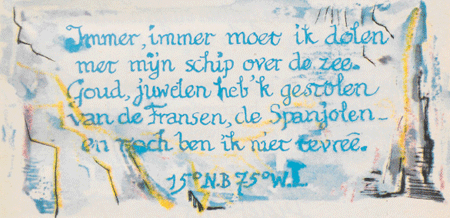 Immer, immer moet ik dolen
met mijn schip over de zee.
Goud, juwelen heb 'k gestolen
van de Fransen, de Spanjolen_
en toch ben ik niet tevreê.
15° N.B 75° W.L